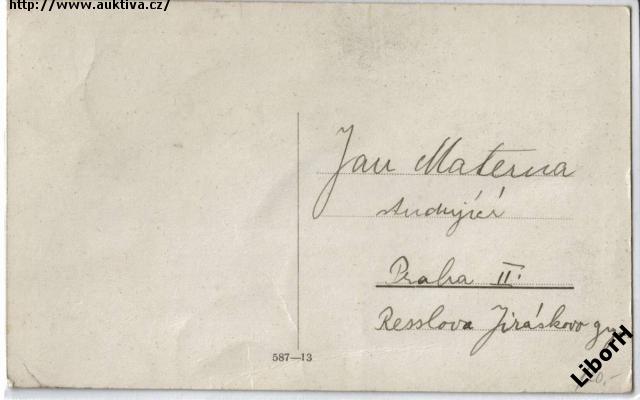 http://www.auktiva.cz/
Jan Materna
studující
Praha II.
Resslova Jiráskovo gy
587—13
LiborH